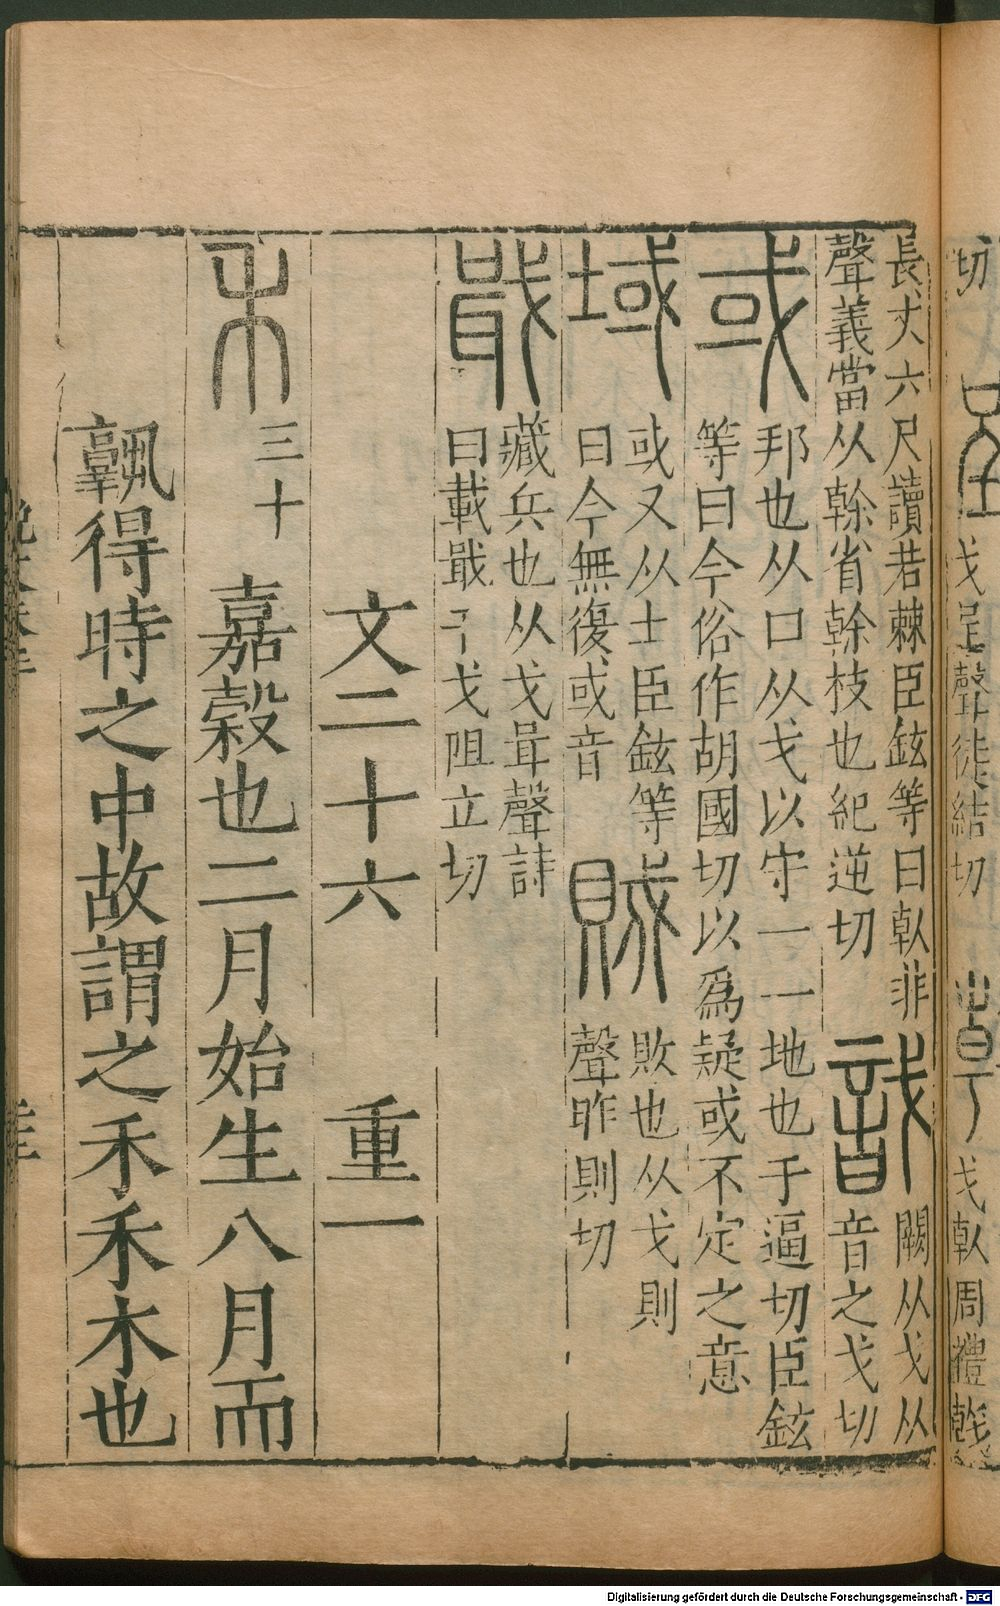 切 戈呈聲徒結切 戈倝周禮
長丈六尺讀若棘臣鉉等曰倝非
聲義當从榦省榦枝也紀逆切
戠 闕从戈从
音之戈切
或 邦也从口从戈以守一一地也于逼切臣鉉
等曰今俗作胡國切以爲疑或不定之意
域 或又从土臣鉉等
曰今無復或音
賊 敗也从戈則
聲昨則切
戢 藏兵也从戈咠聲詩
曰載戢干戈阻立切
文二十六 重一
禾 三十 嘉穀也二月始生八月而
孰得時之中故謂之禾禾木也
Digitalisierung gefördert durch die Deutsche Forschungsgemeinschaft - DFG